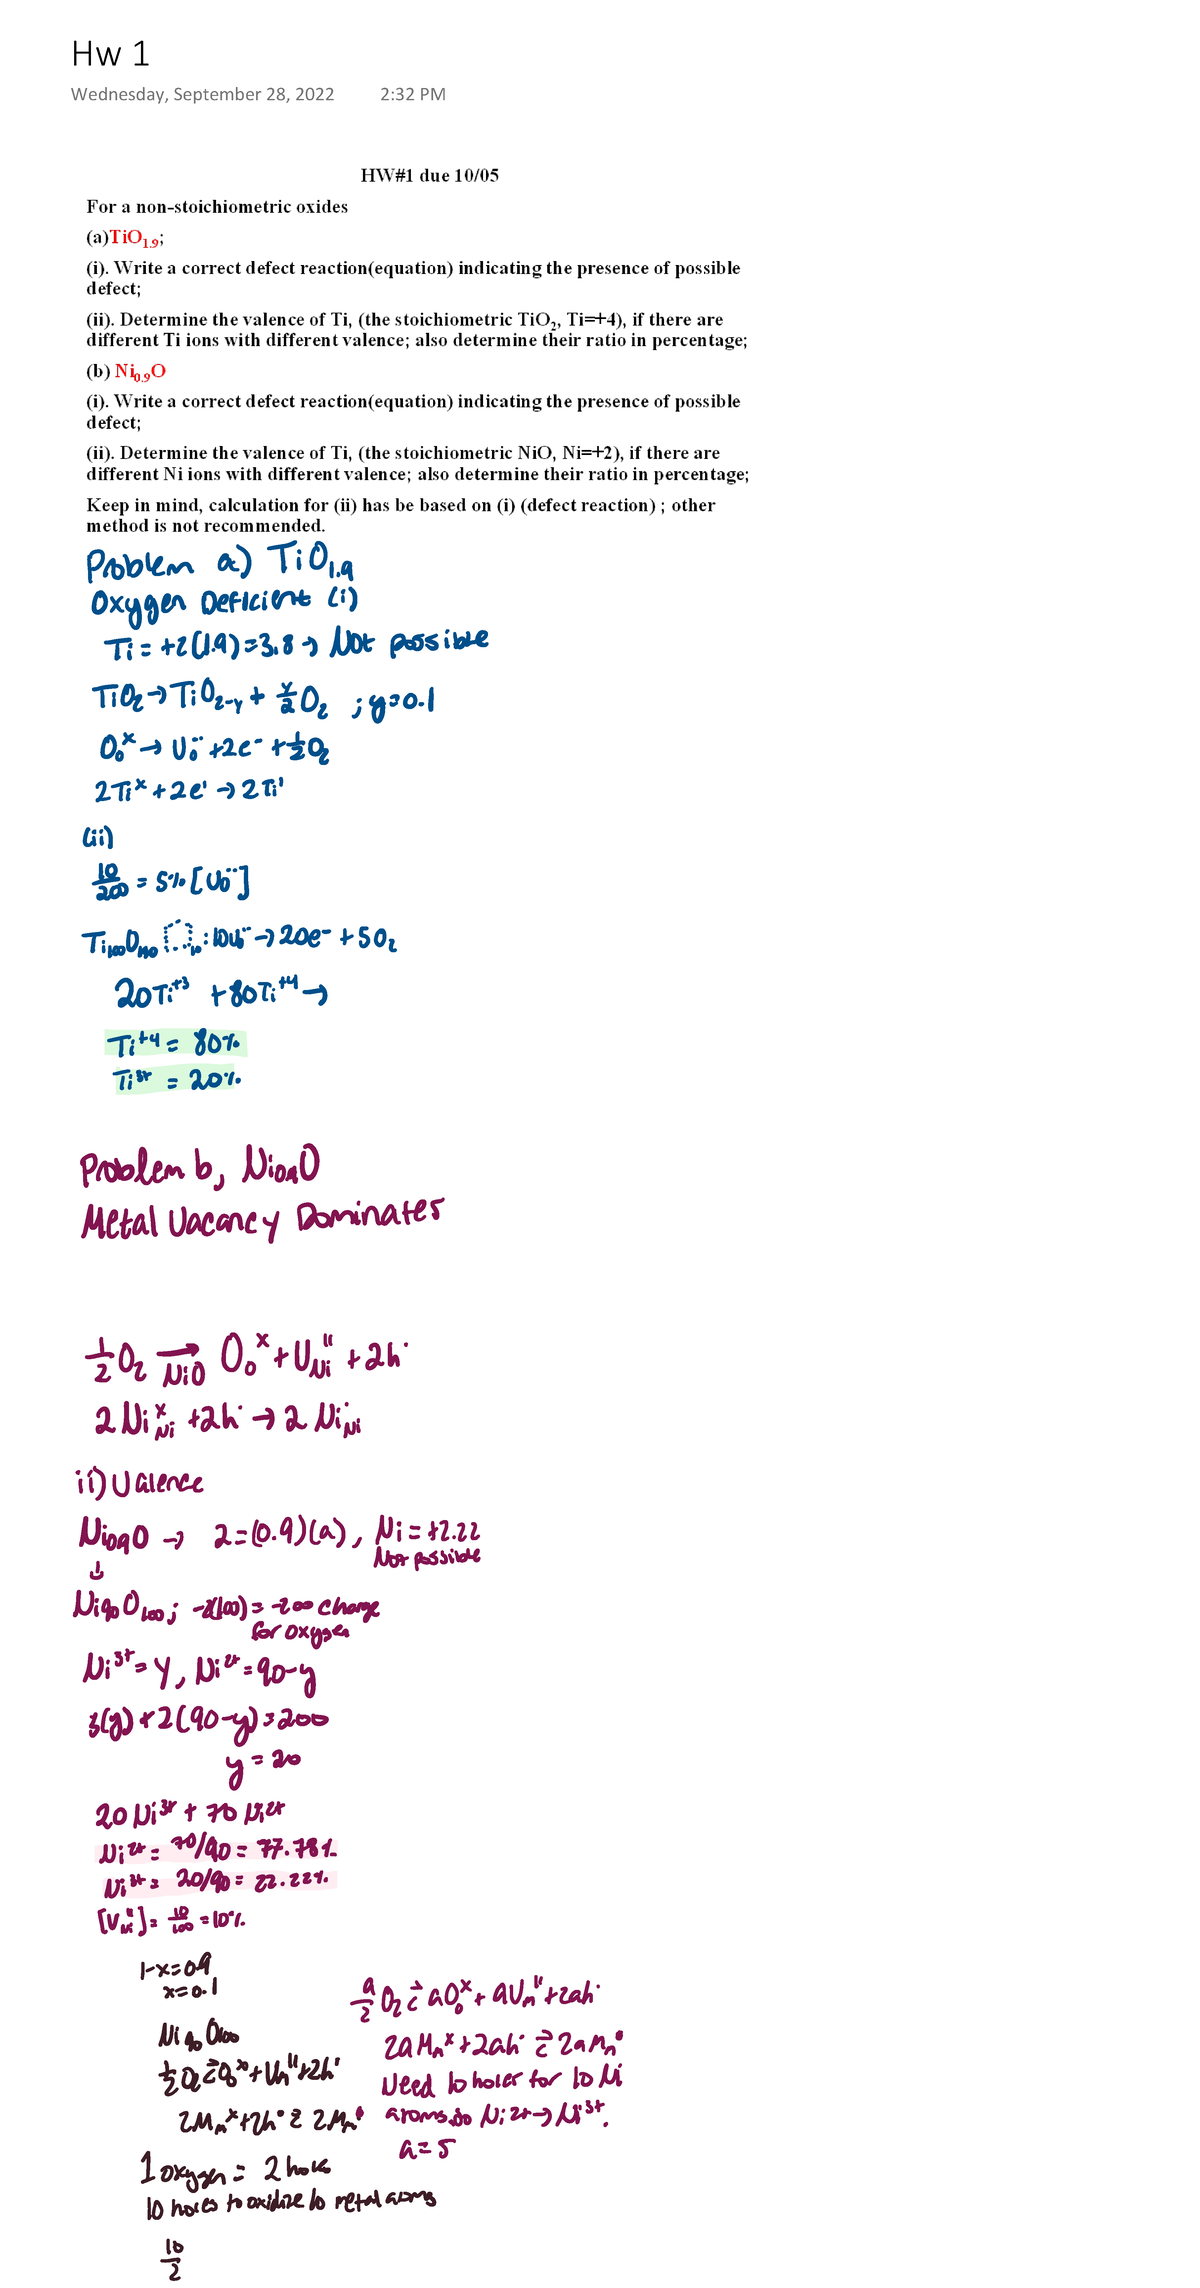 Hw 1
Wednesday, September 28, 2022 2:32 PM
HW#1 due 10/05
For a non-stoichiometric oxides
(a)TiO₁.₉;
(i). Write a correct defect reaction(equation) indicating the presence of possible
defect;
(ii). Determine the valence of Ti, (the stoichiometric TiO₂, Ti=+4), if there are
different Ti ions with different valence; also determine their ratio in percentage;
(b) Ni₀.₉O
(i). Write a correct defect reaction(equation) indicating the presence of possible
defect;
(ii). Determine the valence of Ti, (the stoichiometric NiO, Ni=+2), if there are
different Ni ions with different valence; also determine their ratio in percentage;
Keep in mind, calculation for (ii) has be based on (i) (defect reaction) ; other
method is not recommended.
Problem a) TiO₁.₉
Oxygen Deficient (i)
Ti = +2(1.9) = 3.8 → Not possible
TiO₂ → TiO₂₋y + y/2 O₂ ; y=0.1
Oₒˣ → Vₒ¨ + 2e⁻ + 1/2 O₂
2Tiˣ + 2e' → 2Ti'
(ii)
10/200 = 5% [Vₒ¨]
Ti₁₀₀O₁₉₀ [ ]₁₀ : 10Vₒ¨ → 20e⁻ + 5O₂
20Ti⁺³ + 80Ti⁺⁴ →
Ti⁺⁴ = 80%
Ti³⁺ = 20%
Problem b, Ni₀.₉O
Metal Vacancy Dominates
1/2 O₂ →NiO Oₒˣ + V''Ni + 2h˙
2NiˣNi + 2h˙ → 2Ni˙Ni
ii) Valence
Ni₀.₉O → 2=(0.9)(a), Ni = +2.22
Not possible
↓
Ni₉₀O₁₀₀; -2(100) = -200 charge
for oxygen
Ni³⁺ = y, Ni²⁺ = 90-y
3(y) + 2(90-y) = 200
y = 20
20Ni³⁺ + 70Ni²⁺
Ni²⁺ = 70/90 = 77.78%
Ni³⁺ = 20/90 = 22.22%
[V''Ni] = 10/100 = 10%
1-x=0.9
x=0.1
Ni₉₀O₁₀₀
1/2 O₂ ⇄ Oₒˣ + Vm'' + 2h˙
2Mmˣ + 2h˙ ⇄ 2Mm˙
1 oxygen = 2 holes
10 holes to oxidize 10 metal atoms
10/2
a/2 O₂ ⇄ aOₒˣ + aVm'' + 2ah˙
2aMmˣ + 2ah˙ ⇄ 2aMm˙
Need 10 holes for 10 Ni
atoms, so Ni²⁺ → Ni³⁺.
a = 5